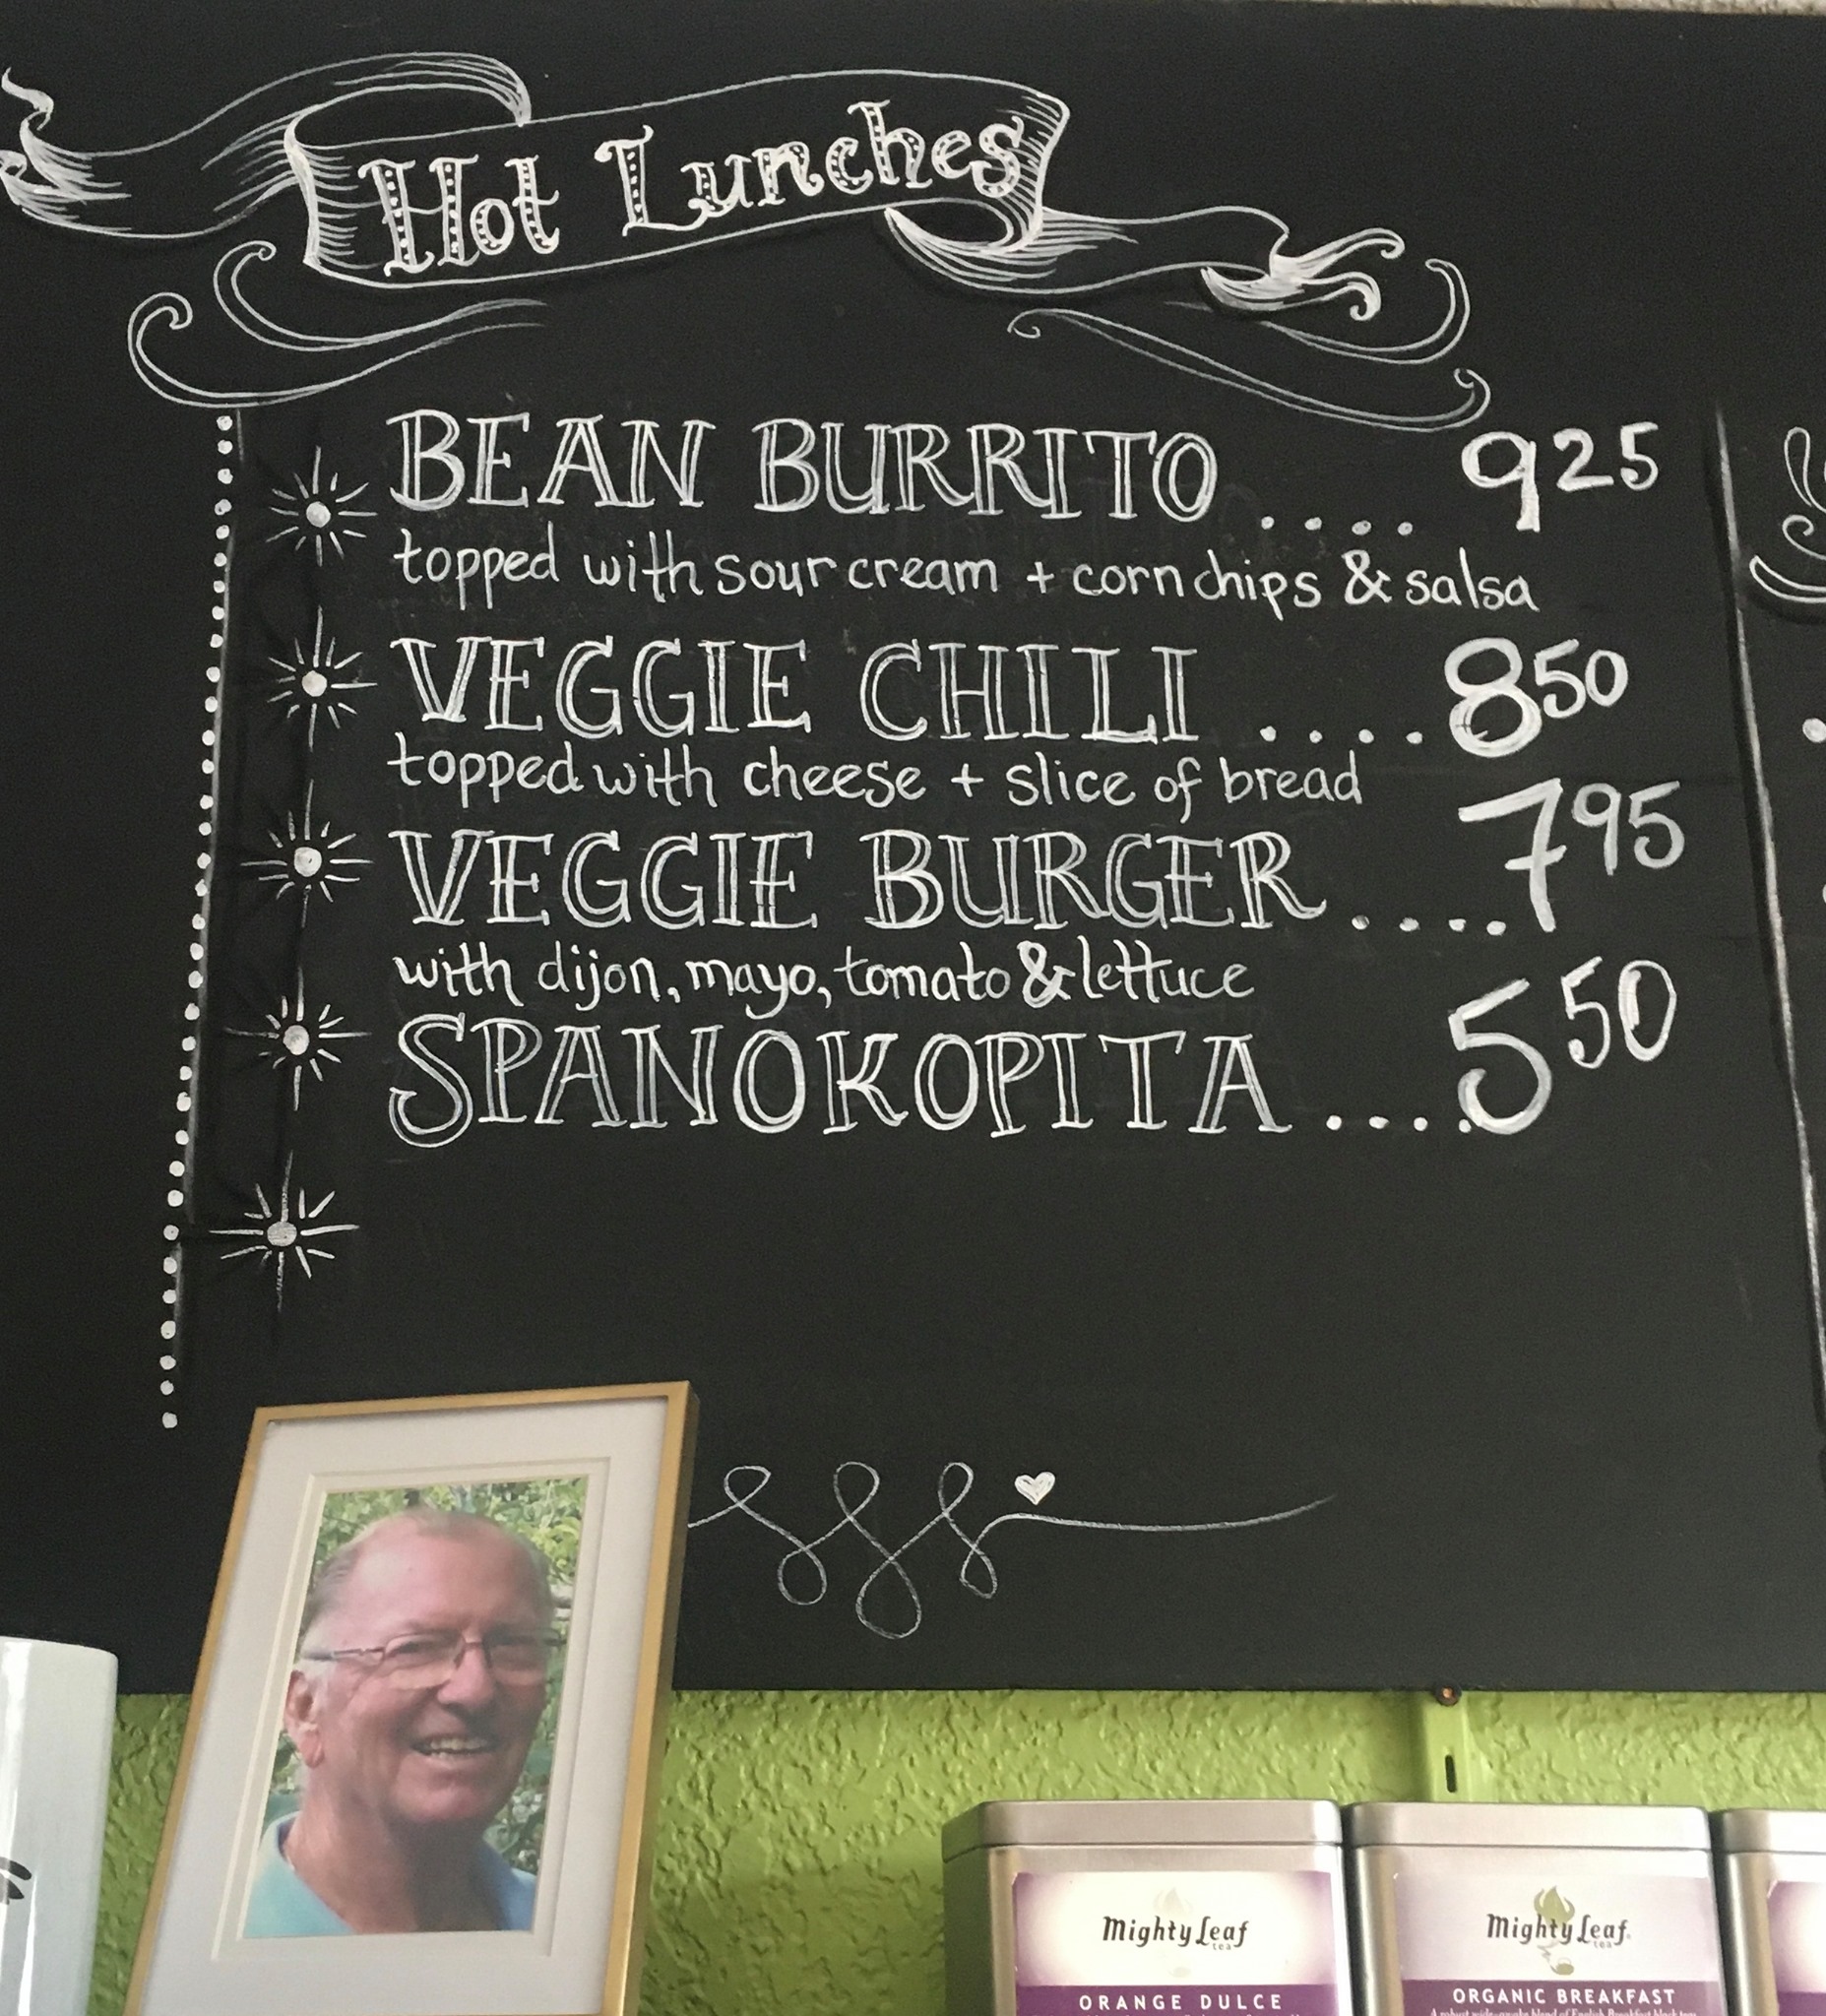 Hot Lunches
BEAN BURRITO .... 925
topped with sour cream + corn chips & salsa
VEGGIE CHILI ....850
topped with cheese + slice of bread
VEGGIE BURGER ....795
with dijon, mayo, tomato & lettuce
SPANOKOPITA ....550
Mighty Leaf
tea
ORANGE DULCE
Mighty Leaf
tea
ORGANIC BREAKFAST